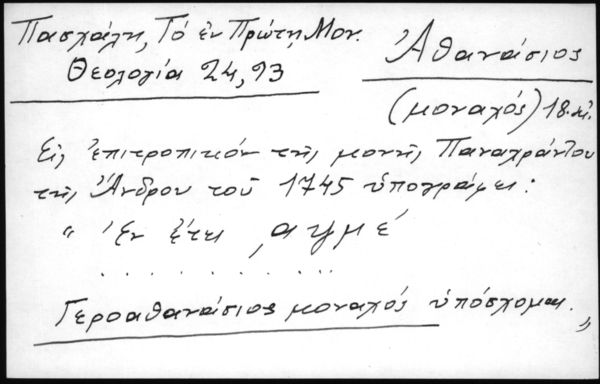 Πασχάλη, Τό ἐν Πρώτῃ Μον.
Θεολογία 24, 93
Ἀθανάσιος
(μοναχός) 18. αἰ.
Εἰς ἐπιτροπικόν τῆς μονῆς Παναχράντου
τῆς Ἄνδρου τοῦ 1745 ὑπογράφει:
" Ἐν ἔτει ,αψμέ
. . . . . . . . . . . .
Γεροαθανάσιος μοναχός ὑπόσχομαι. "